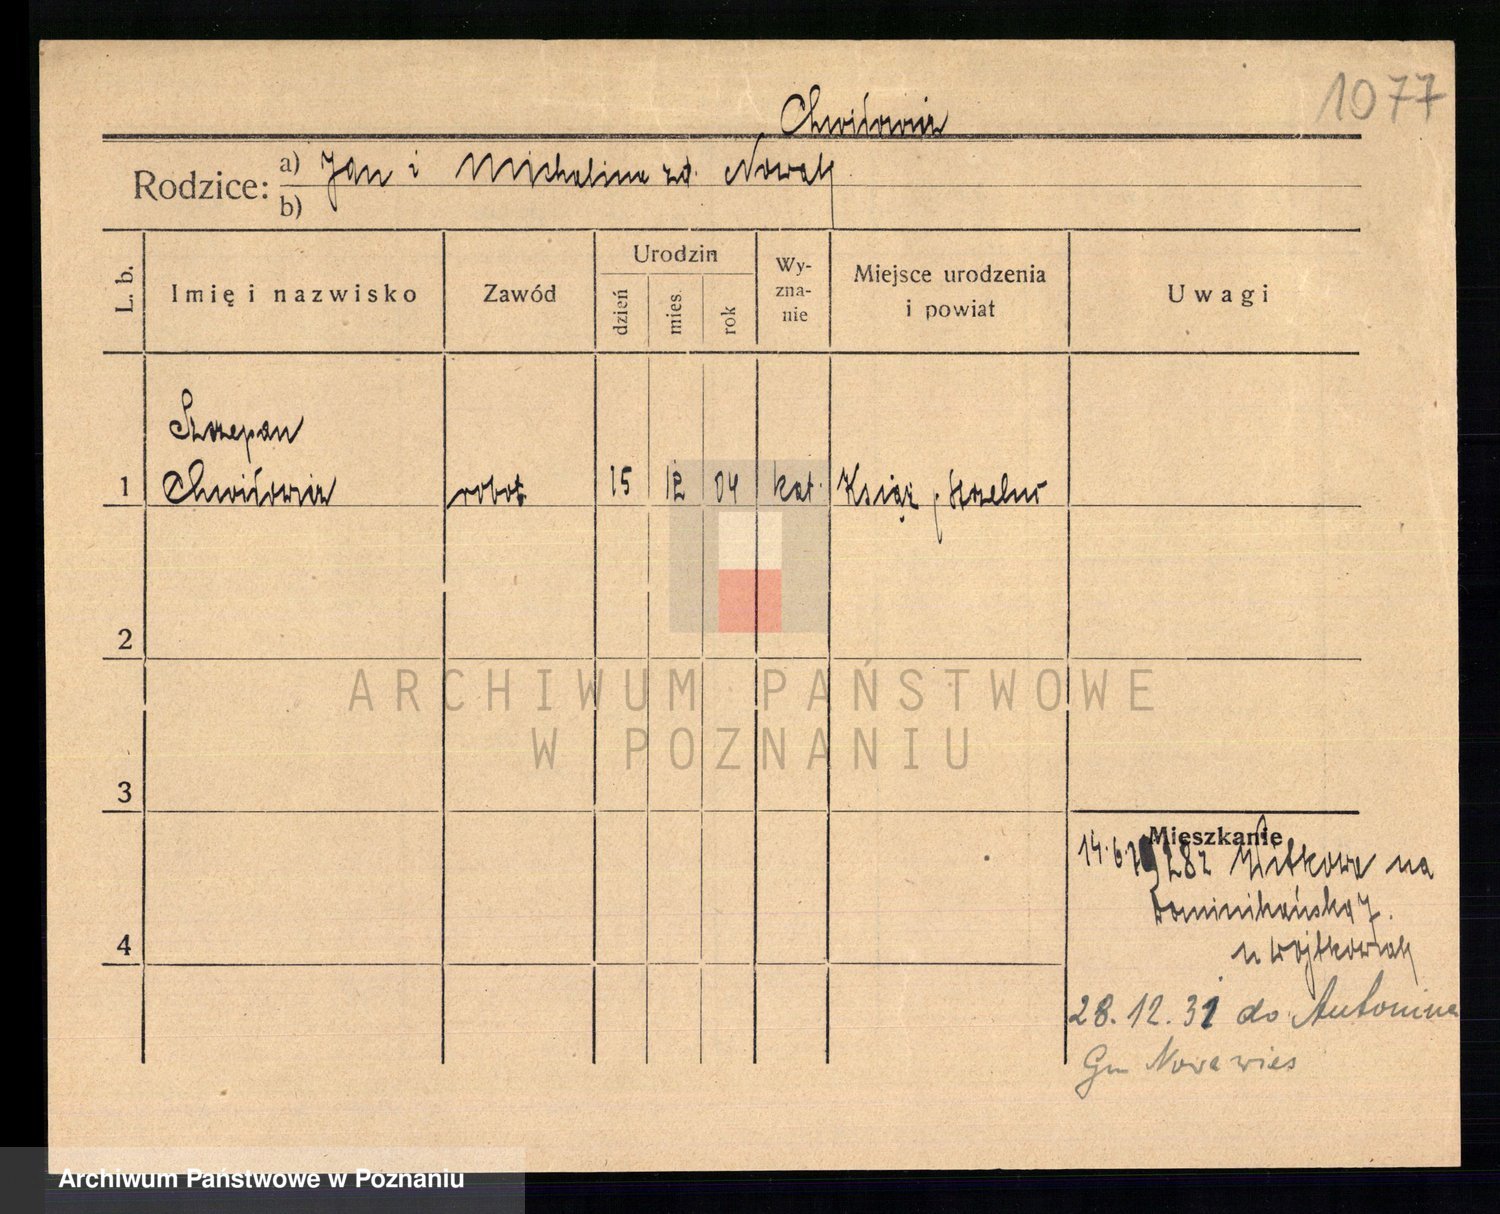 1077
Chwiłowicz
Rodzice: a) Jan i Michalina zd. Nowak
b)
L. b. Imię i nazwisko Zawód Urodzin dzień mies. rok Wyznanie Miejsce urodzenia i powiat Uwagi
Szczepan
1 Chwiłowicz robot. 15 12 04 kat. Książ, p. Strzelno
2
ARCHIWUM PAŃSTWOWE
W POZNANIU
3
Mieszkanie
14.6. 1928 z Witkowa na
Dominikańska 7.
u Wojtkowiak
4
28.12.31 do Antonina
Gm Nowawieś
Archiwum Państwowe w Poznaniu